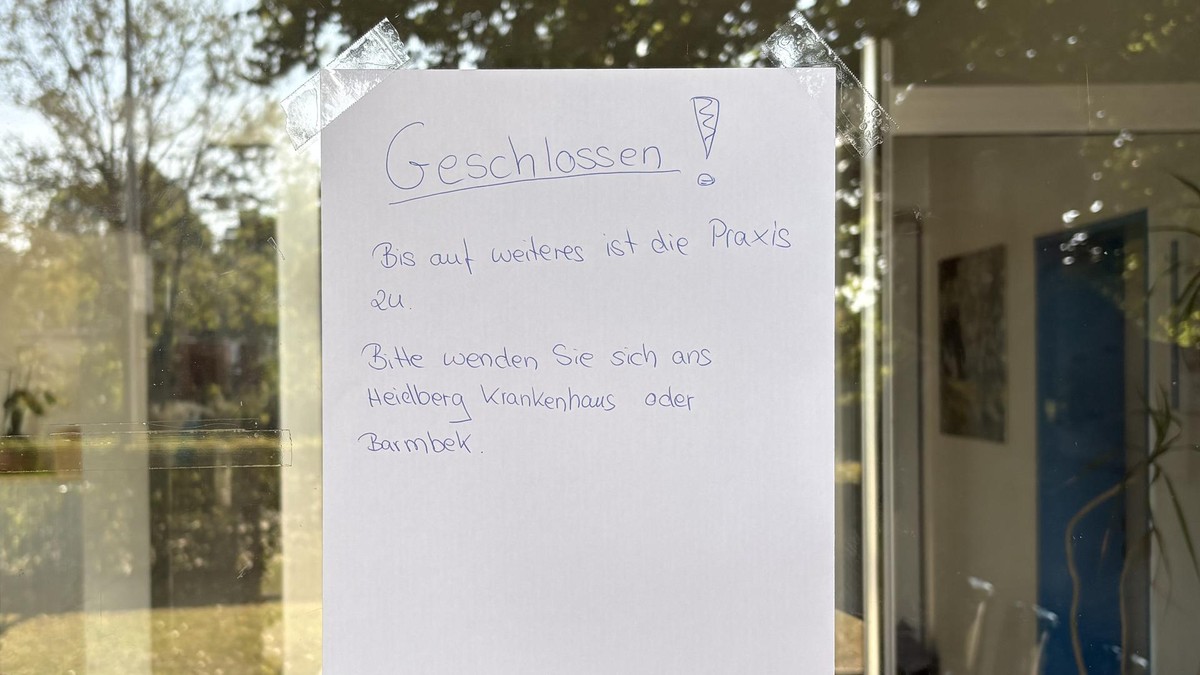 Geschlossen!
Bis auf weiteres ist die Praxis
zu.
Bitte wenden Sie sich ans
Heidlberg Krankenhaus oder
Barmbek.